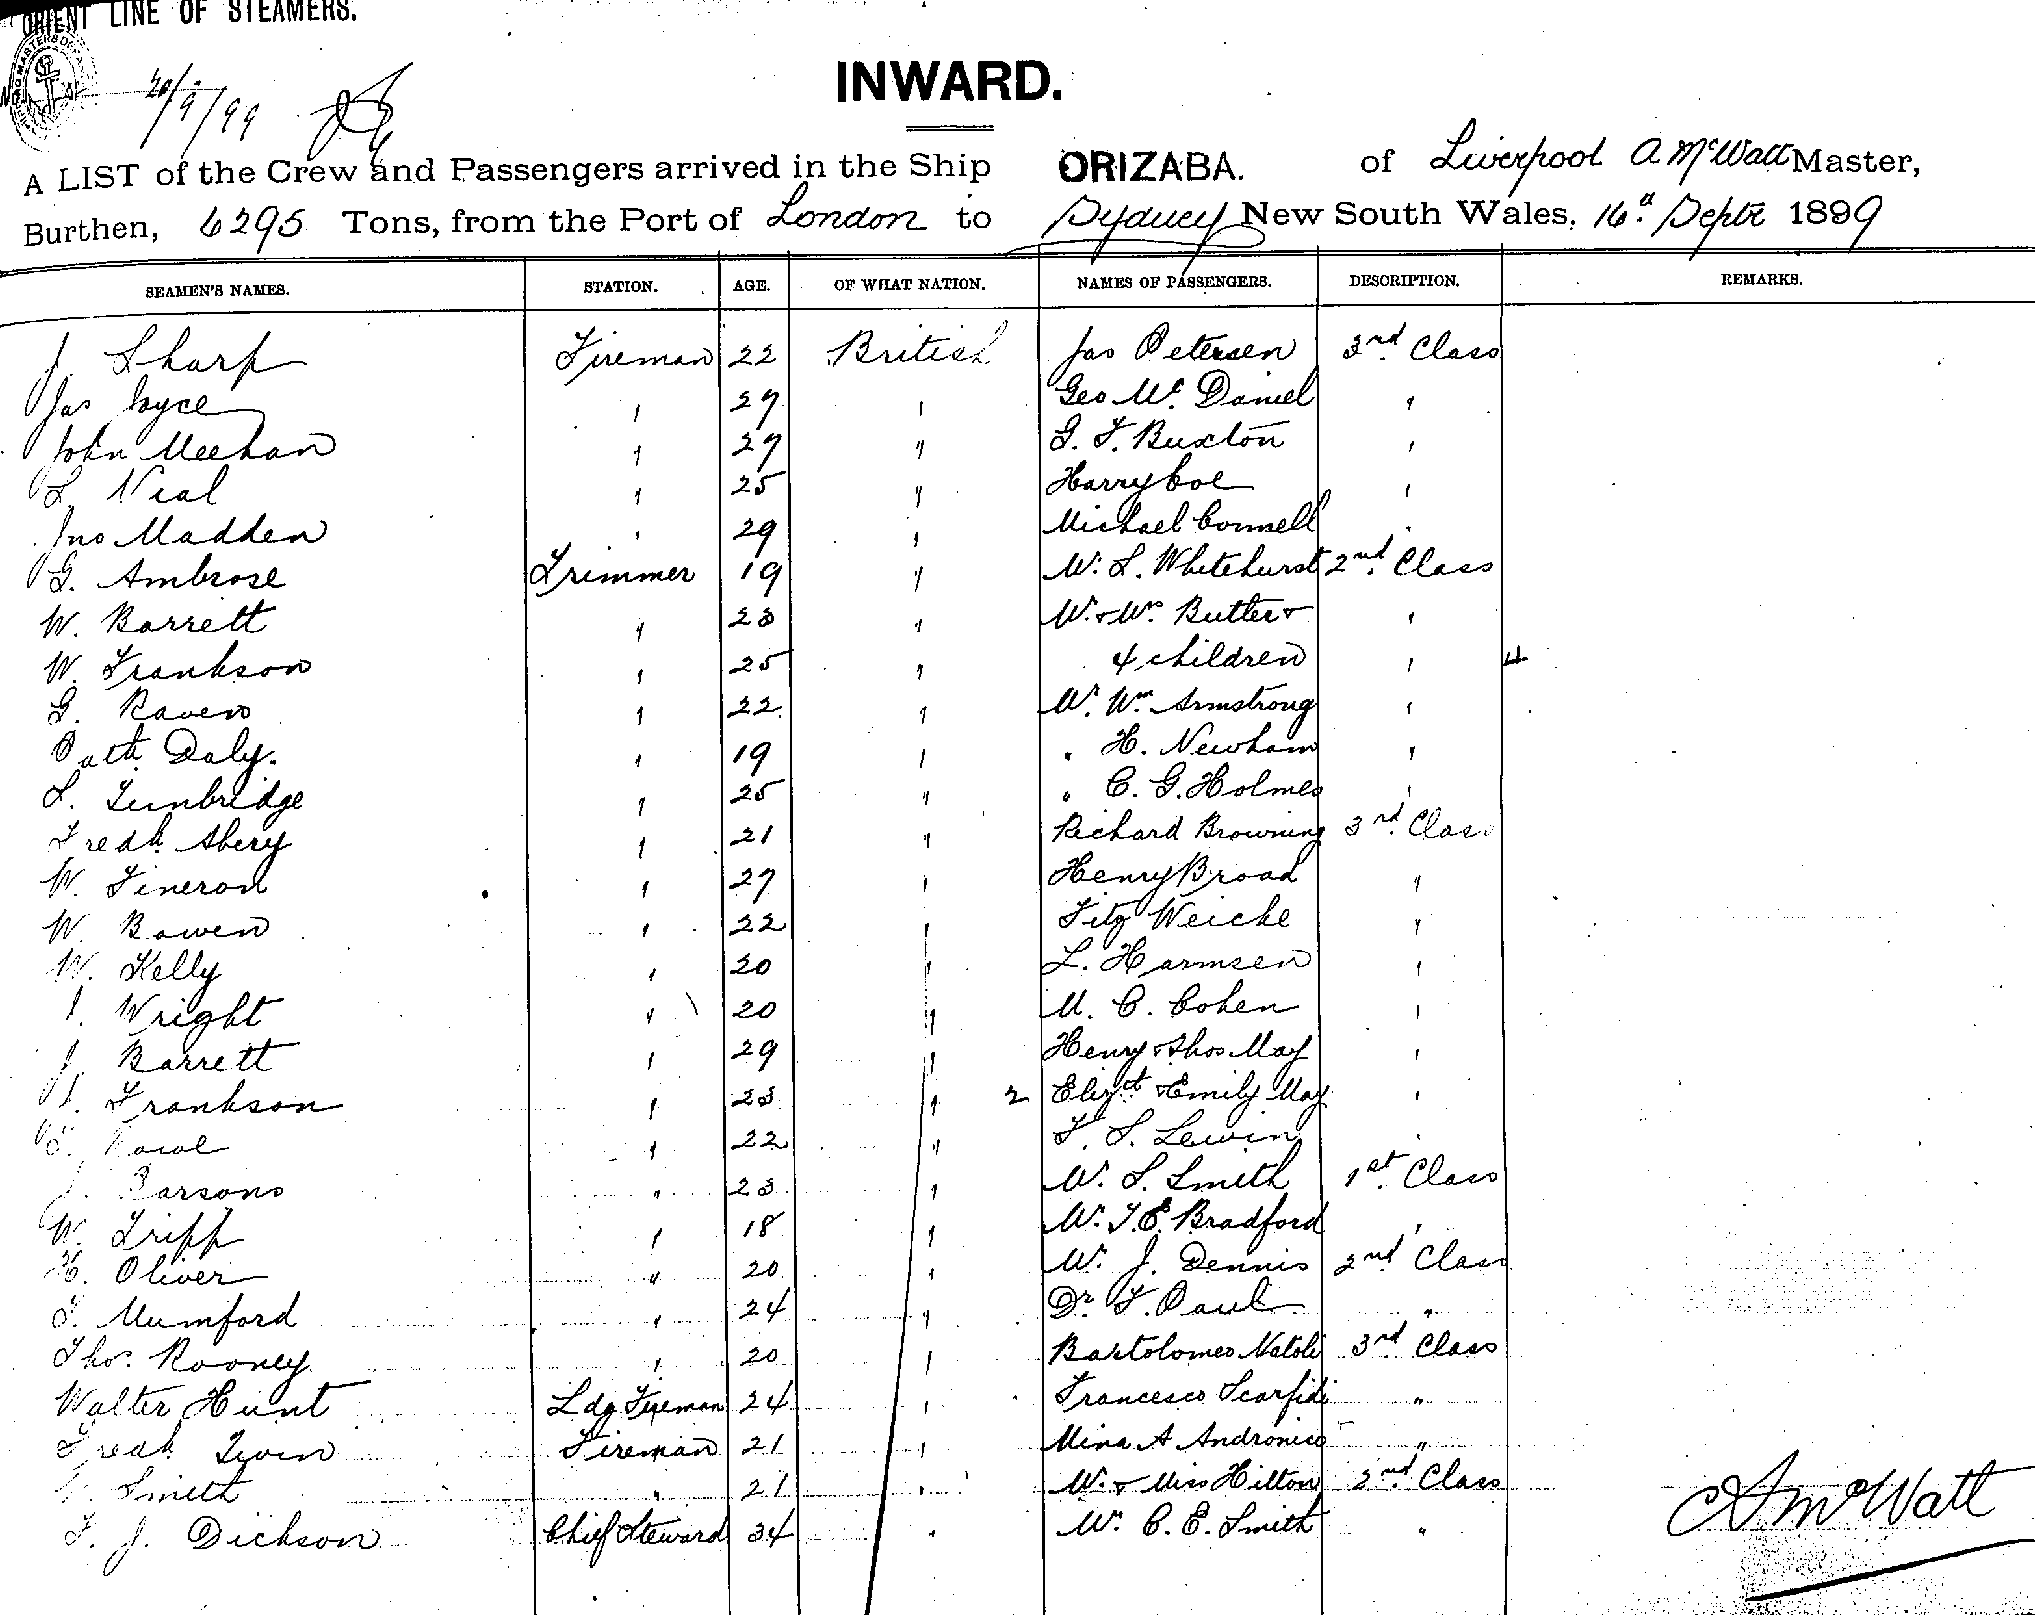 ORIENT LINE OF STEAMERS.
20/9/99
INWARD.
A LIST of the Crew and Passengers arrived in the Ship ORIZABA. of Liverpool A McWatt Master,
Burthen, 6295 Tons, from the Port of London to Sydney New South Wales, 16th Septr 1899
SEAMEN'S NAMES. STATION. AGE. OF WHAT NATION. NAMES OF PASSENGERS. DESCRIPTION. REMARKS.
J. Sharp Fireman 22 British Jas Petersen 3rd Class
Jas Joyce " 27 " Geo Mc Daniel "
John Meehan " 27 " G. F. Buxton "
L. Neal " 25 " Harry Coe "
Jno Madden " 29 " Michael Connell "
G. Ambrose Trimmer 19 " Mr. L. Whitehurst 2nd Class
W. Barrett " 23 " Mr & Mrs Butler & "
W. Frankson " 25 " 4 children " 4
G. Raven " 22 " Mr. Wm Armstrong "
Patk Daly. " 19 " " H. Newham "
L. Tunbridge " 25 " " C. G. Holmes "
Fredk Abery " 21 " Richard Browning 3rd Class
W. Fineron " 27 " Henry Broad "
W. Bowen " 22 " Fitz Weicke "
W. Kelly " 20 " L. Harmsen "
J. Wright " 20 " M. C. Cohen "
J. Barrett " 29 " Henry & Thos May "
J. Frankson " 23 " 2 Elizt & Emily May "
" 22 " F. S. Lewin "
J. Parsons " 23 " Mr. S. Smith 1st Class
W. Tripp " 18 " Mr. T. E. Bradford "
H. Oliver " 20 " Mr. J. Dennis 2nd Class
T. Mumford " 24 " Dr F. Paul "
Thos. Rooney " 20 " Bartolomeo Natoli 3rd Class
Walter Hunt Ldg Fireman 24 " Francesco Scarfidi "
Fredk Irvin Fireman 21 " Mina A Andronico "
Smith " 21 " Mr. & Miss Hilton 2nd Class
F. J. Dickson Chief Steward 34 " Mr. C. E. Smith "
A McWatt